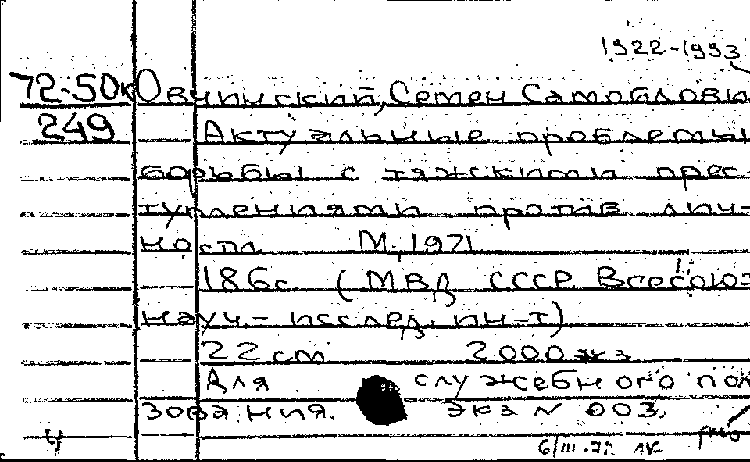 1922-1993
72-50к Овчинский, Семен Самойлови
249 Актуальные проблемы
борьбы с тяжкими прес-
туплениями против лич-
ности М., 1971
186с. (МВД СССР. Всесоюз
науч.- исслед. ин-т)
22 см 2000 экз
Для служебного пол
зования. Экз № 003.
4 6/III-72